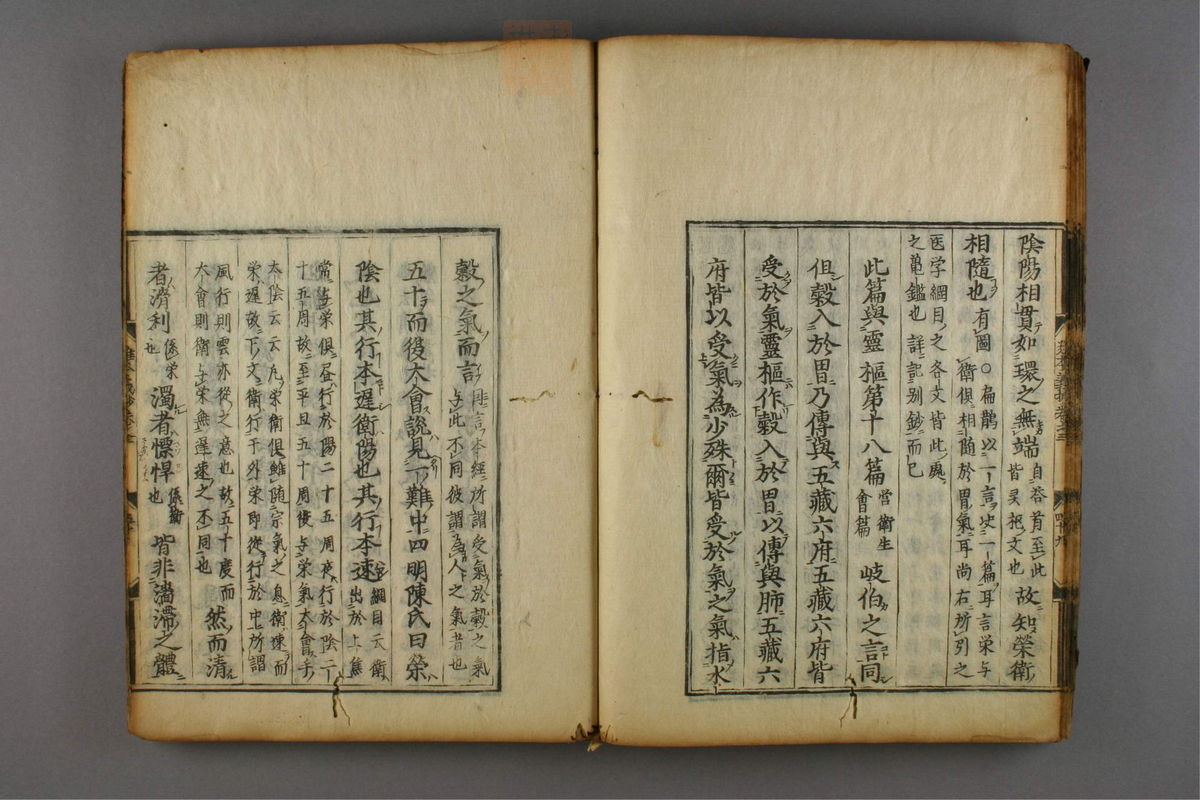 陰陽相貫如環之無端 自答首至此
皆炅抠文也 故知榮衛
相隨也 有圖○扁鵲以一言史一篇耳言榮与
衛俱相随於胃氣耳尚右所引之
医学綱目之各文皆此奥
之龜鑑也 詳記别鈔而已
此篇與靈樞第十八篇 營衛生
會篇 岐伯之言同
但穀入於胃乃傳與五藏六府五藏六府皆
受於氣靈樞作穀入於胃以傳與肺五藏六
府皆以受氣為少殊爾皆受於氣之氣指水
穀之氣而言 誰言本經所謂受氣於穀之氣
与此不同彼謂為人之氣者也
五十而後大會說見一難中四明陳氏曰榮
陰也其行本遲衛陽也其行本速 綱目云衛出於上焦
常与榮俱昼行於陽二十五周夜行於陰二
十五周故至平旦五十周復与榮氣大會手
太陰云云凡榮衛俱雖随宗氣之息衛速而
榮遲故下文衛行于外榮即從行於中所謂
風行則雲亦從之意也故五十度而
大會則衛与榮無遲速之不同也 然而清
者滑利 係榮
也 濁者慓悍 係衛
也 皆非濇滯之體